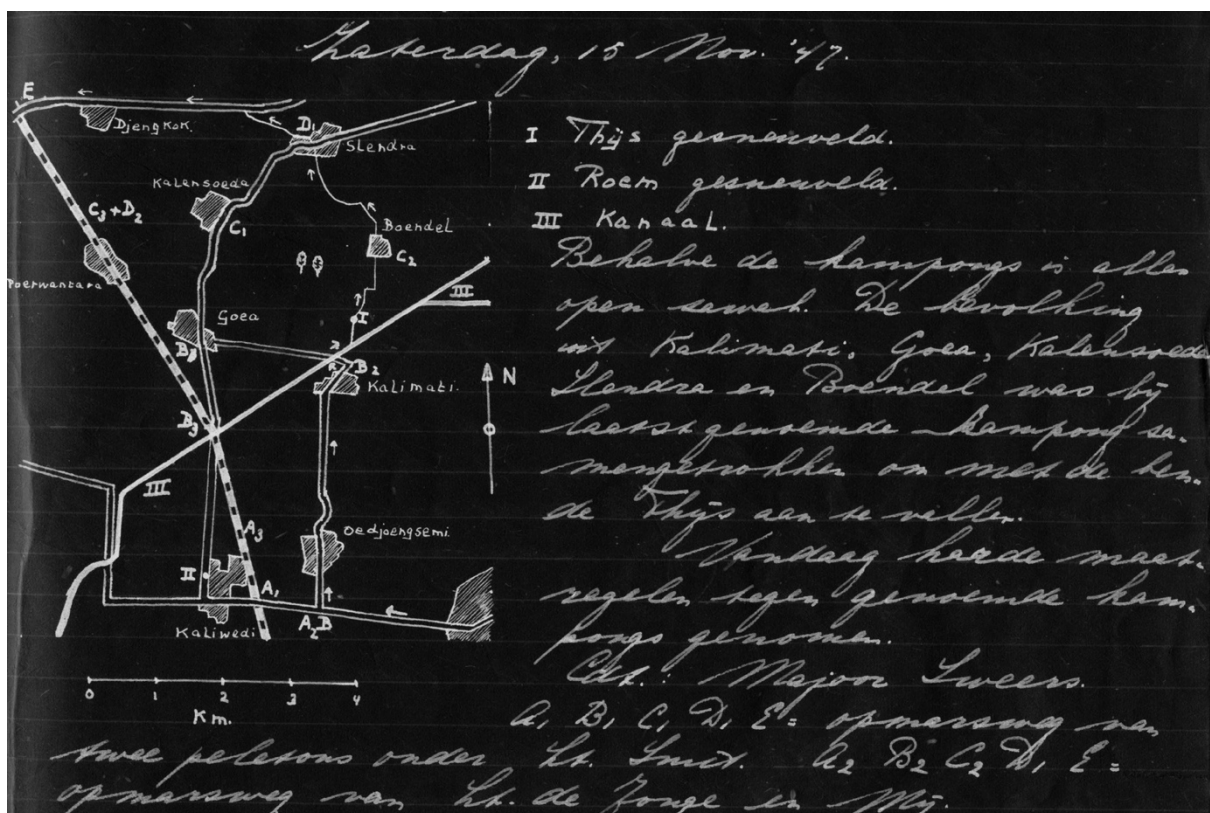 Zaterdag, 15 Nov. '47.
E
Djengkok.
D1
Slendra
Kalensoeda
C3 + D2
C1
Boendel
C2
Poerwantara
III
Goea
I
B1
B2
Kalimati.
N
B3
III
A3
Oedjoengsemi.
II
A1
A2 B
Kaliwedi
0 1 2 3 4
Km.
I Thijs gesneuveld.
II Roem gesneuveld.
III Kanaal.
Behalve de kampongs is alles
open sawah. De bevolking
uit Kalimati, Goea, Kalensoeda
Slendra en Boendel was bij
laatstgenoemde kampong sa-
mengetrokken om met de ben-
de Thijs aan te vallen.
Vandaag harde maat-
regelen tegen genoemde kam-
pongs genomen.
Cdt.: Majoor Sweers.
A1 B1 C1 D1 E = opmarsweg van
twee peletons onder Lt. Smit. A2 B2 C2 D1 E =
opmarsweg van Lt. de Jonge en Mij.